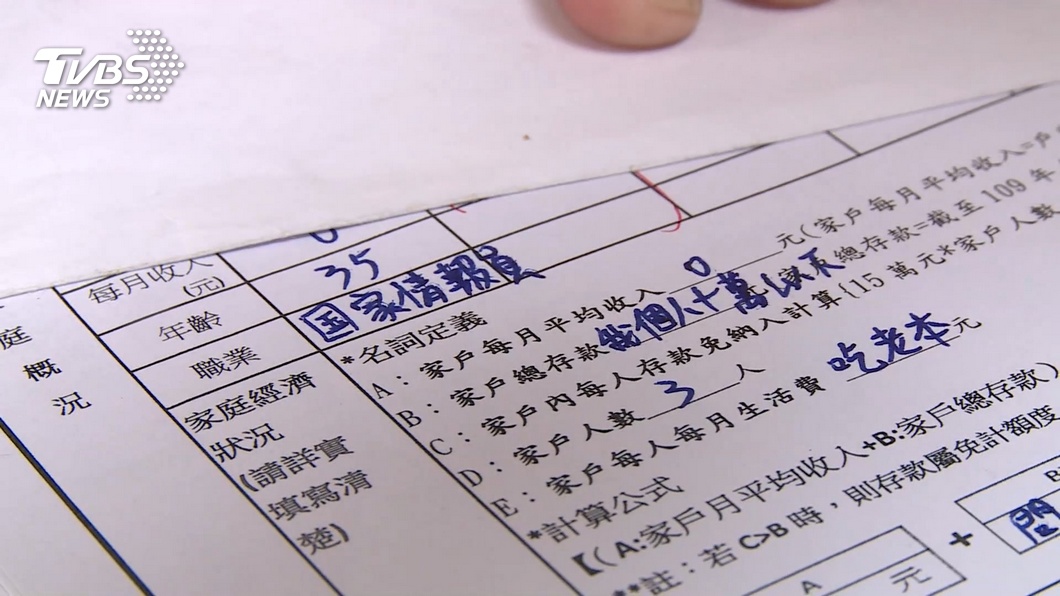 TVBS
NEWS
庭
概
況
每月收入
(元)
0
年齡
35
職業
国家情報員
家庭經濟
狀況
(請詳實
填寫清
楚)
*名詞定義
A：家戶每月平均收入 0 元(家戶每月平均收入=戶
B：家戶總存款 我個人十萬以下 總存款=截至 109 年
C：家戶內每人存款免納入計算(15 萬元*家戶人數
D：家戶人數 3 人
E：家戶每人每月生活費 吃老本 元
*計算公式
【(A:家戶月平均收入+B:家戶總存款)
**註：若 C>B 時，則存款屬免計額度
A 元 + B